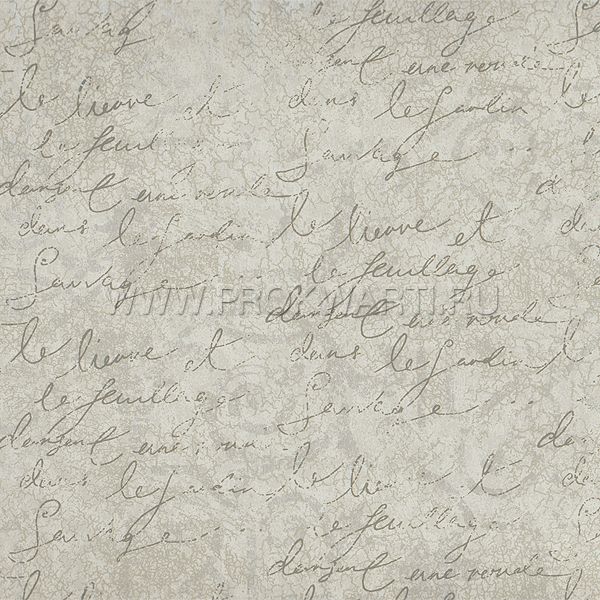 Sauvage le feuillage
dansent erne ronde
le lievre et dans le Jardin le
le feuil Sauvage
dansent erne ronde
dans le Jardin le lievre et
Sauvage le feuillage
WWW.PROKVMARTI.RU
dansent erne ronde
le lievre et dans le Jardin
le feuillage Sauvage
dansent erne
dans le Jardin le lievre
Sauvage le feuillage
dansent erne ronde